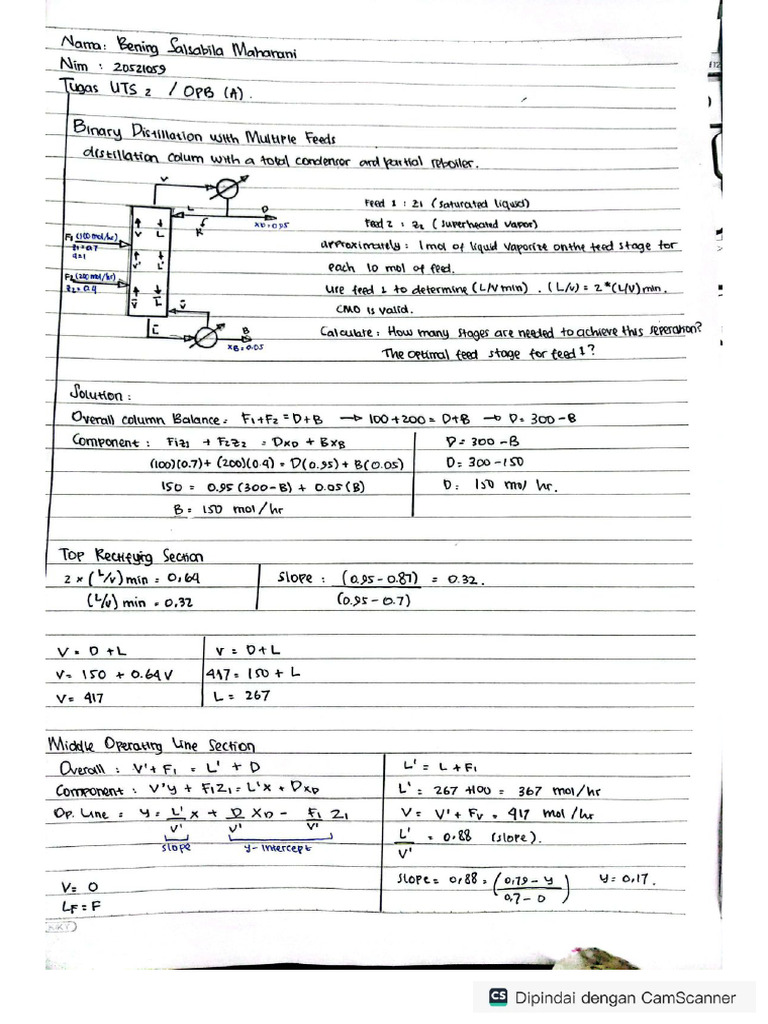 Nama: Bening Salsabila Maharani
Nim : 20521059
Tugas UTS 2 / OPB (A).
Binary Distillation with Multiple Feeds
distillation colum with a total condensor and partial reboiler.
V
L
D
R
xD=0.95
V
L
F1 (100 mol/hr)
z1=0.7
q=1
V'
L'
F2 (200 mol/hr)
z2=0.4
V̄
L̄
V̄
L̄
B
xB=0.05
Feed 1 : z1 (saturated liquid)
Feed 2 : z2 (superheated vapor)
approximately : 1 mol of liquid vaporize on the feed stage for
each 10 mol of feed.
use feed 1 to determine (L/V min). (L/V) = 2*(L/V) min.
CMO is valid.
Calculate : How many stages are needed to achieve this seperation?
The optimal feed stage for feed 1?
Solution :
Overall column Balance = F1+F2 = D+B → 100+200 = D+B → D= 300-B
Component : F1z1 + F2z2 = DxD + BxB
(100)(0.7)+(200)(0.4) = D(0.95)+B(0.05)
150 = 0.95 (300-B) + 0.05 (B)
B = 150 mol/hr
D= 300 -B
D= 300 -150
D= 150 mol hr.
Top Rectifying Section
2 x (L/V) min = 0,64
(L/V) min = 0,32
Slope : (0.95-0.87) = 0.32.
(0.95-0.7)
V = D +L
V= 150 + 0.64V
V= 417
V = D+L
417 = 150 + L
L = 267
Middle Operating Line Section
Overall : V'+ F1 = L' + D
Component : V'y + F1Z1= L'x + DxD
Op. Line = y = L' x + D XD - F1 Z1
V' V' V'
slope y-intercept
V= 0
LF = F
L' = L + F1
L' = 267 +100 = 367 mol/hr
V= V' + FV = 417 mol /hr
L' = 0.88 (slope).
V'
Slope = 0,88 = (0,79 - y) y= 0,17.
0,7 - 0
CS Dipindai dengan CamScanner